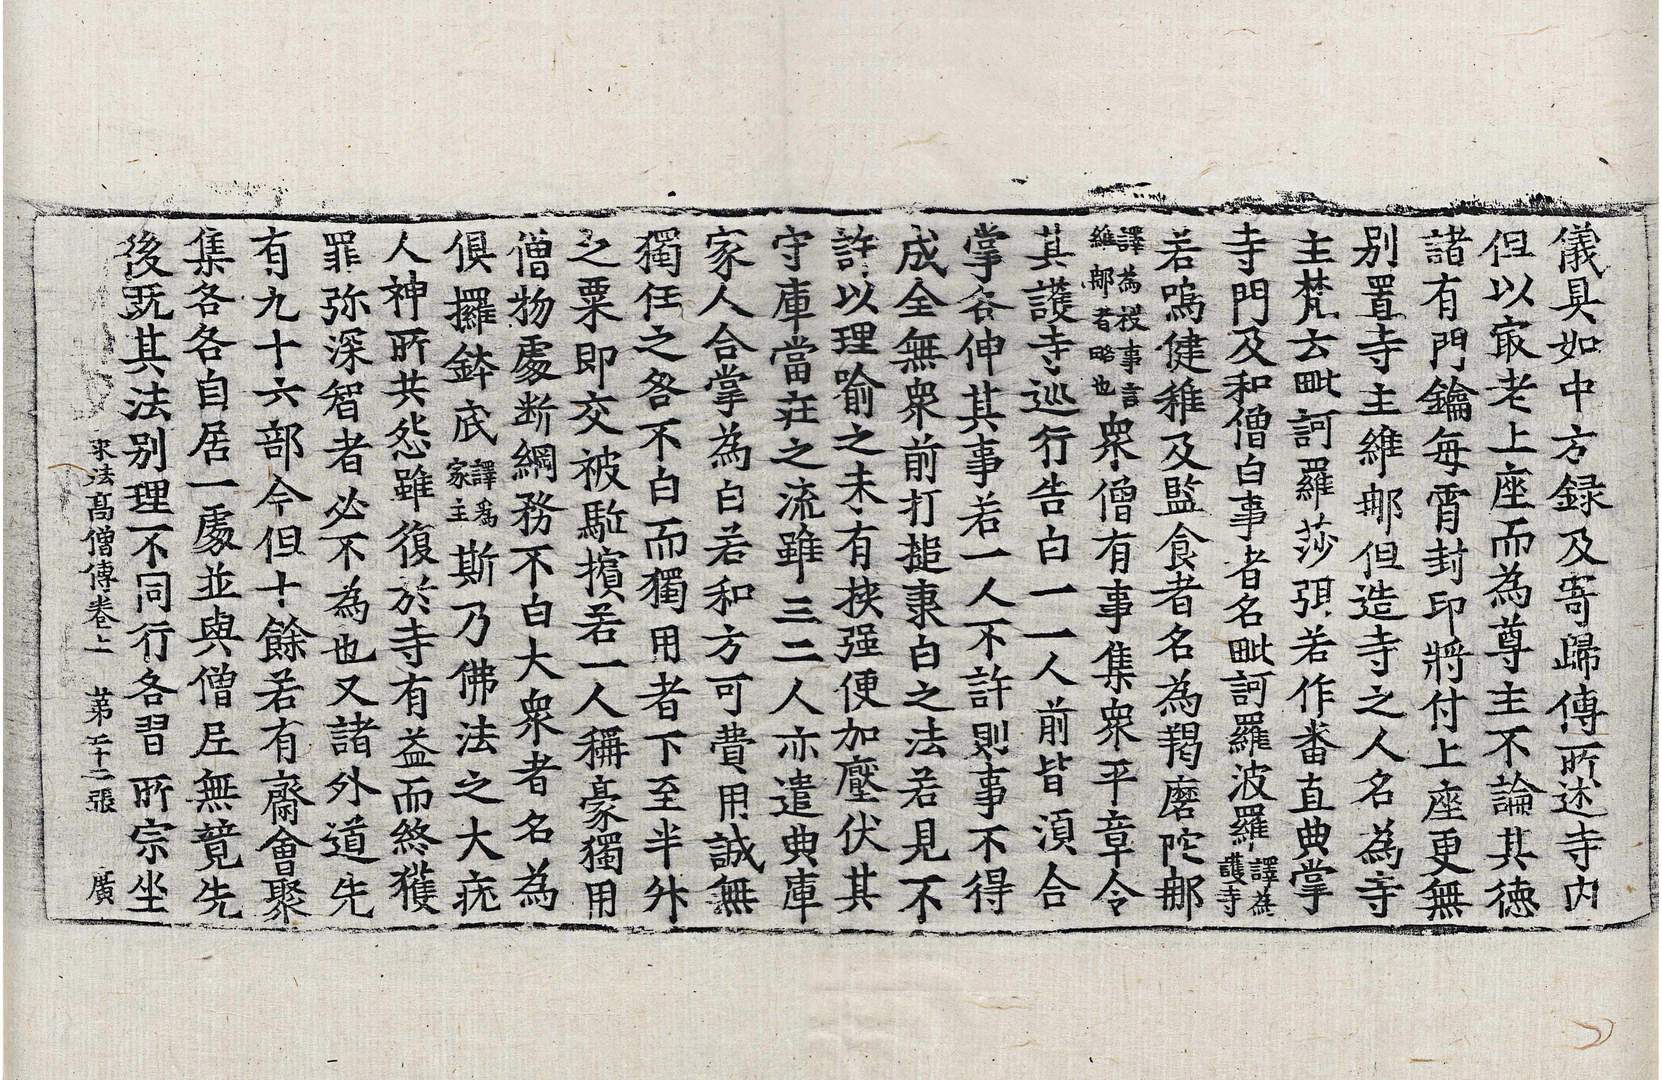 儀具如中方録及寄歸傳所述寺内
但以㝡老上座而為尊主不論其德
諸有門鑰每宵封印將付上座更無
别置寺主維那但造寺之人名為寺
主梵云毗訶羅莎弭若作番直典掌
寺門及和僧白事者名毗訶羅波羅譯為護寺
若鳴健稚及監食者名為羯磨陀那
譯為授事言維那者略也衆僧有事集衆平章令
其護寺巡行告白一一人前皆湏合
掌各伸其事若一人不許則事不得
成全無衆前打搥秉白之法若見不
許以理喻之未有挾强便加壓伏其
守庫當莊之流雖三二人亦遣典庫
家人合掌為白若和方可費用誠無
獨任之咎不白而獨用者下至半升
之粟即交被駈擯若一人稱豪獨用
僧物處断綱務不白大衆者名為
俱攞鉢底譯爲家主斯乃佛法之大疣
人神所共怨雖復於寺有益而終獲
罪弥深智者必不為也又諸外道先
有九十六部今但十餘若有齋會聚
集各各自居一處並與僧尼無競先
後既其法别理不同行各習所宗坐
求法髙僧傳卷上　苐二十二張　廣